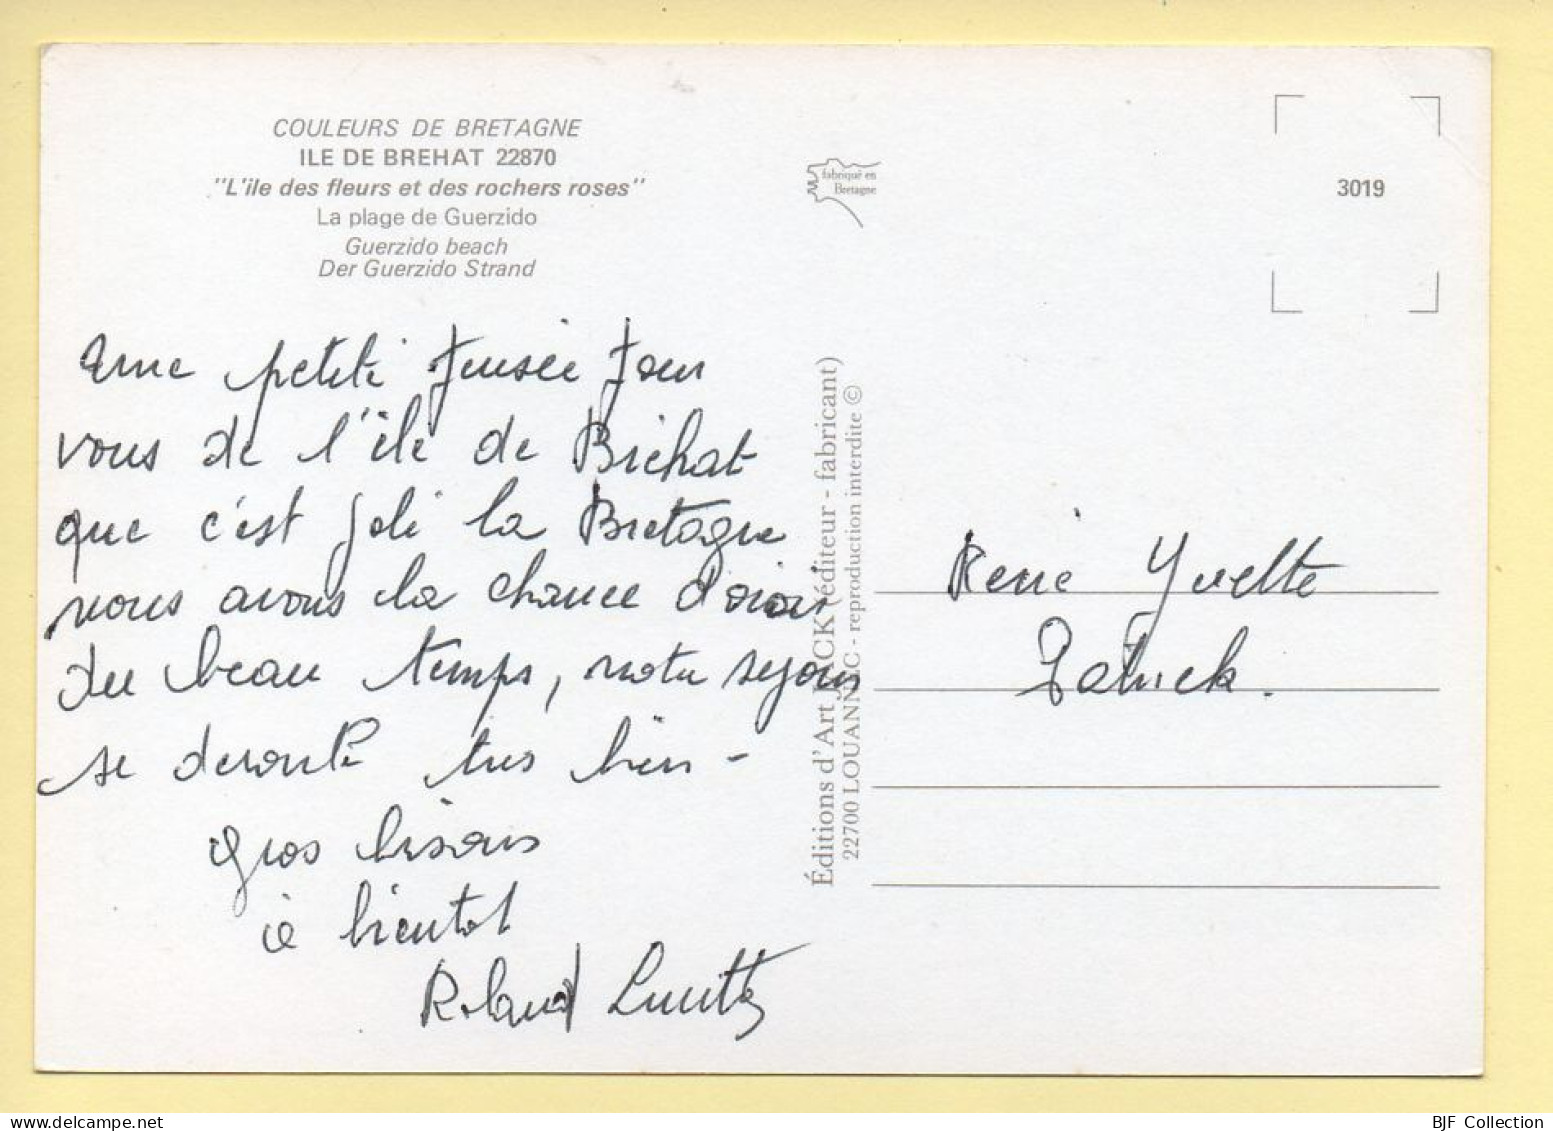 COULEURS DE BRETAGNE
ILE DE BREHAT 22870
"L'ile des fleurs et des rochers roses"
La plage de Guerzido
Guerzido beach
Der Guerzido Strand
Une petite pensée pour
vous de l'île de Bréhat
que c'est joli la Bretagne
nous avons la chance d'avoir
du beau temps, notre sejour
se deroule tres bien -
gros bisous
à bientot
Roland Lucette
Éditions d'Art JACK (éditeur - fabricant)
22700 LOUANNEC - reproduction interdite ©
fabriqué en
Bretagne
3019
René Yvette
Patrick.
BJF Collection